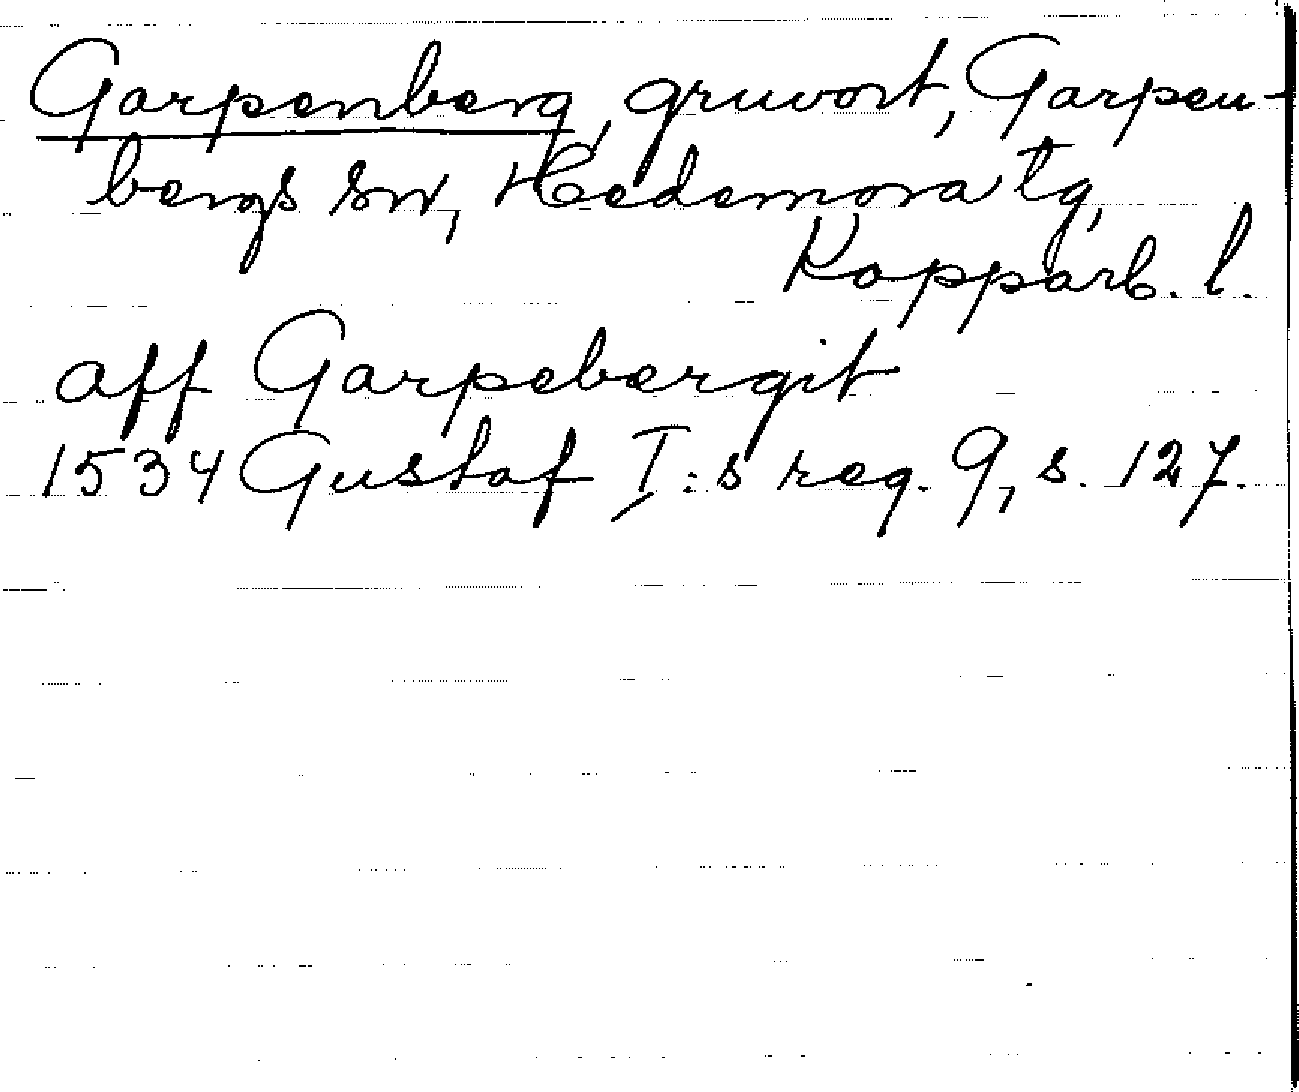 Garpenberg, gruvort, Garpen-
bergs sn, Hedemora tg,
Kopparb. l.
aff Garpebergit
1534 Gustaf I:s reg. 9, s. 127.